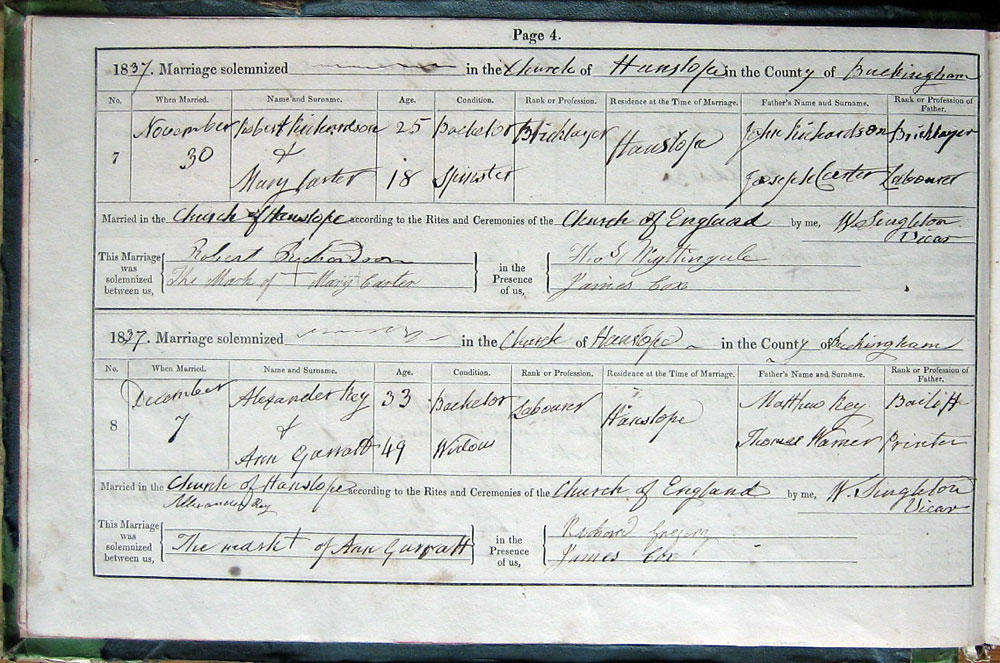 Page 4.
1837. Marriage solemnized in the Church of Hanslope in the County of Buckingham
No. When Married. Name and Surname. Age. Condition. Rank or Profession. Residence at the Time of Marriage. Father's Name and Surname. Rank or Profession of Father.
November Robert Richardson 25 Bachelor Bricklayer John Richardson Bricklayer
7 30 & Hanslope
Mary Carter 18 Spinster Joseph Carter Labourer
Married in the Church of Hanslope according to the Rites and Ceremonies of the Church of England by me, W. Singleton
Vicar
This Marriage was solemnized between us, Robert Richardson in the Presence of us, Nightingale
The Mark of + Mary Carter James Cox
1837. Marriage solemnized in the Church of Hanslope in the County of Buckingham
No. When Married. Name and Surname. Age. Condition. Rank or Profession. Residence at the Time of Marriage. Father's Name and Surname. Rank or Profession of Father.
December Alexander Key 33 Bachelor Labourer Matthew Key Bailiff
8 7 & Hanslope
Ann Garratt 49 Widow Thomas Warner Printer
Married in the Church of Hanslope according to the Rites and Ceremonies of the Church of England by me, W. Singleton
Vicar
This Marriage was solemnized between us, Alexander Key in the Presence of us, Richard Gregory
The mark + of Ann Garratt James Cox